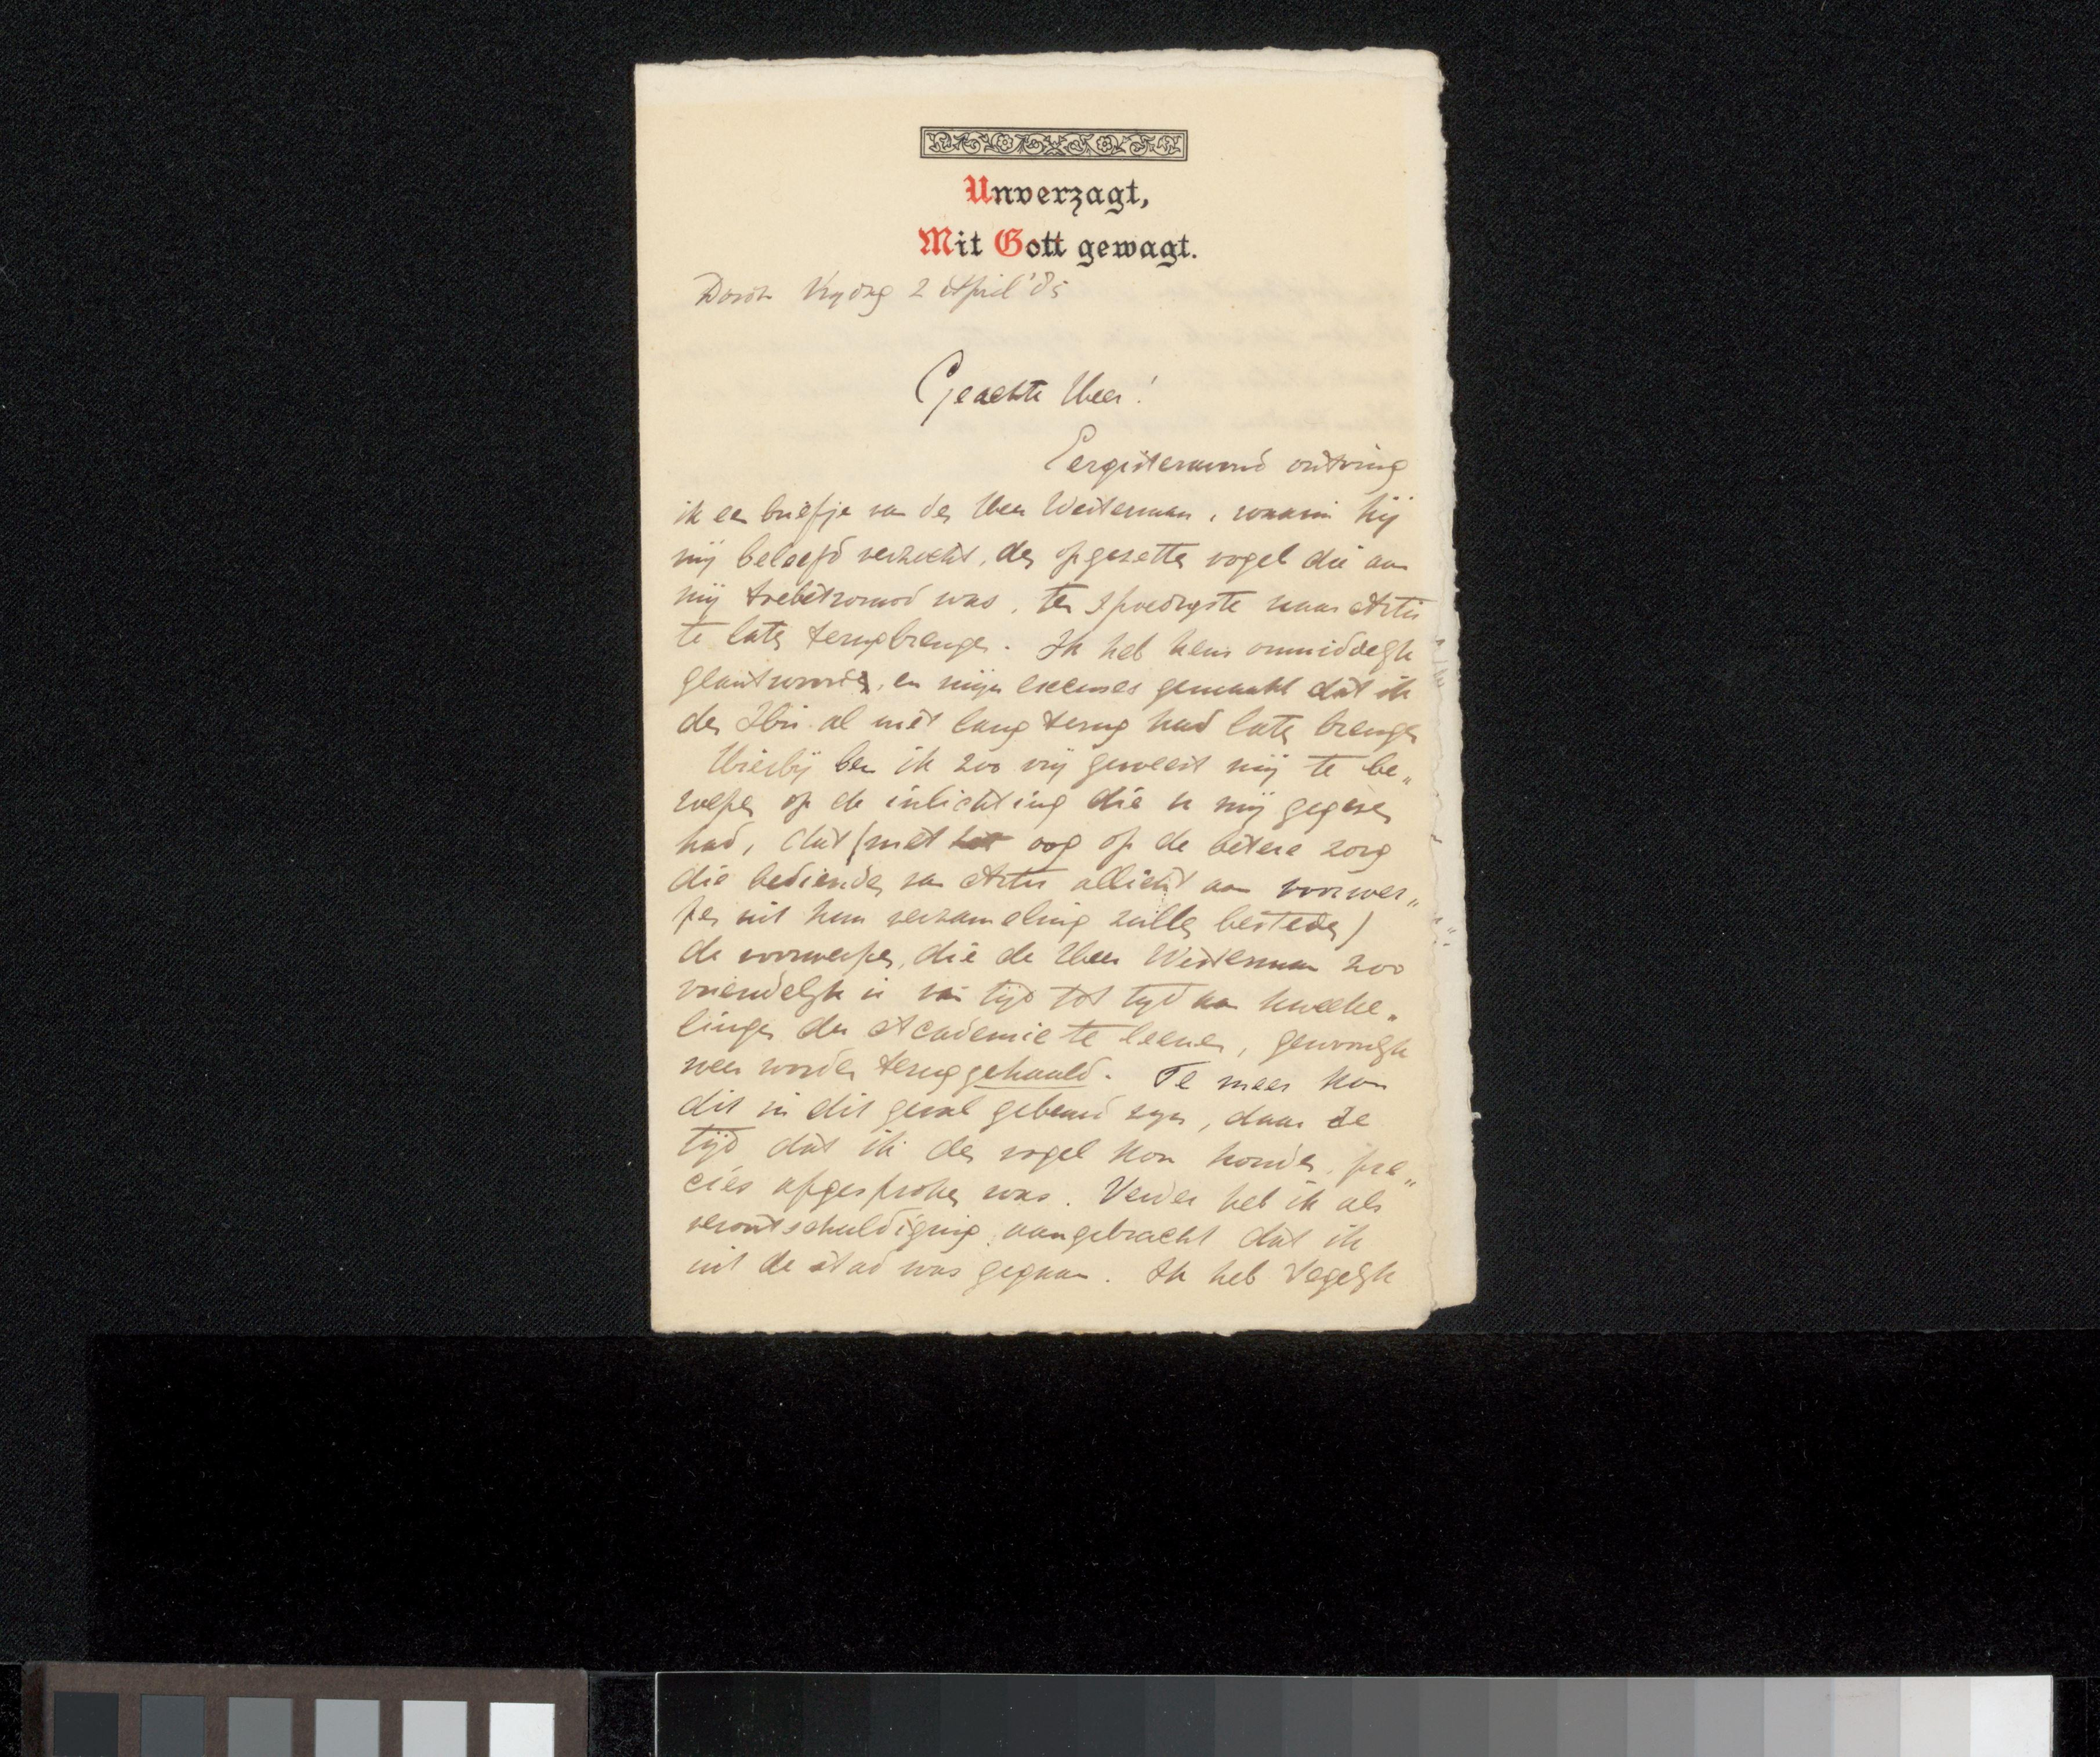 Unverzagt,
Mit Gott gewagt.
Dordt Vrydag 2 April '85
Geachte Heer!
Eergisteravond ontving
ik een briefje van den Heer Westerman, waarin hij
mij beleefd verzocht, den opgezetten vogel die aan
mij toebetrouwd was, ten spoedigste naar Artis
te laten terugbrengen. Ik heb hem onmiddelijk
geantwoord, en mijn excuses gemaakt dat ik
den Ibis al niet lang terug had laten brengen
Hierbij ben ik zoo vrij geweest mij te be„
roepen op de inlichting die u mij gegeven
had, dat (met het oog op de betere zorg
die bedienden van Artis allicht aan voorwer„
pen uit hun verzameling zullen besteden)
de voorwerpen, die de Heer Westerman zoo
vriendelijk is van tijd tot tijd aan kweeke„
lingen der Academie te leenen, gewoonlijk
weer worden teruggehaald. Te meer kon
dit in dit geval gebeurd zijn, daar de
tijd dat ik den vogel kon houden, pre„
cies afgesproken was. Verder heb ik als
verontschuldiging aangebracht dat ik
uit de stad was gegaan. Ik heb